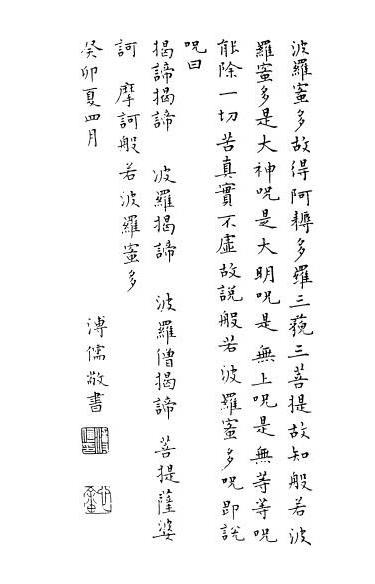 波羅蜜多故得阿耨多羅三藐三菩提故知般若波
羅蜜多是大神呪是大明呪是無上呪是無等等呪
能除一切苦真實不虛故說般若波羅蜜多呪即說
呪曰
揭諦揭諦 波羅揭諦 波羅僧揭諦 菩提薩婆
訶 摩訶般若波羅蜜多
癸卯夏四月 溥儒敬書